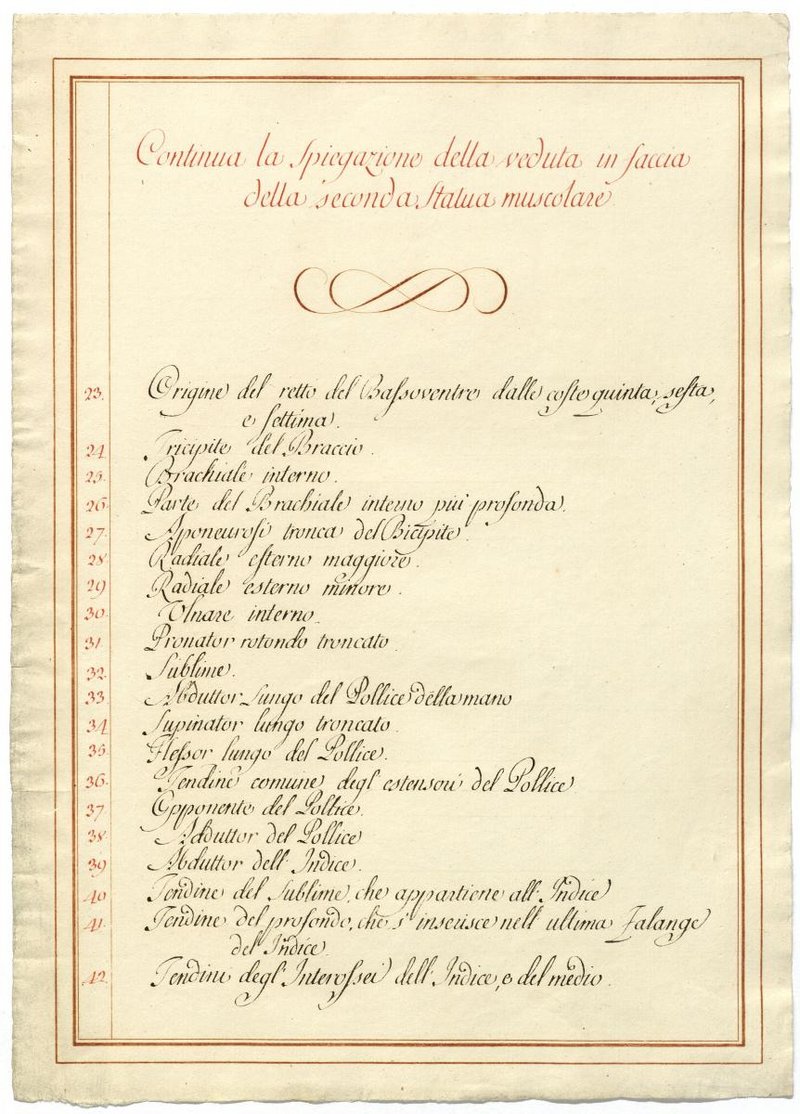 Continua la Spiegazione della veduta in faccia
della seconda Statua muscolare
23. Origine del retto del Bassoventre dalle coste quinta, sesta,
e settima.
24 Tricipite del Braccio.
25. Brachiale interno.
26 Parte del Brachiale interno piu profonda.
27. Aponeurosi tronca del Bicipite.
28 Radiale esterno maggiore.
29 Radiale esterno minore.
30. Ulnare interno.
31 Pronator rotondo troncato
32. Sublime.
33 Abduttor Lungo del Pollice della mano
34 Supinator lungo troncato.
35. Flessor lungo del Pollice.
36. Tendine comune degl' estensori del Pollice
37. Opponente del Pollice.
38 Adduttor del Pollice
39 Abduttor dell' Indice.
40 Tendine del Sublime, che appartiene all' Indice
41. Tendine del profondo, che s' inserisce nell' ultima Falange
del Indice.
42. Tendini degl' Interossei dell' Indice, e del medio.